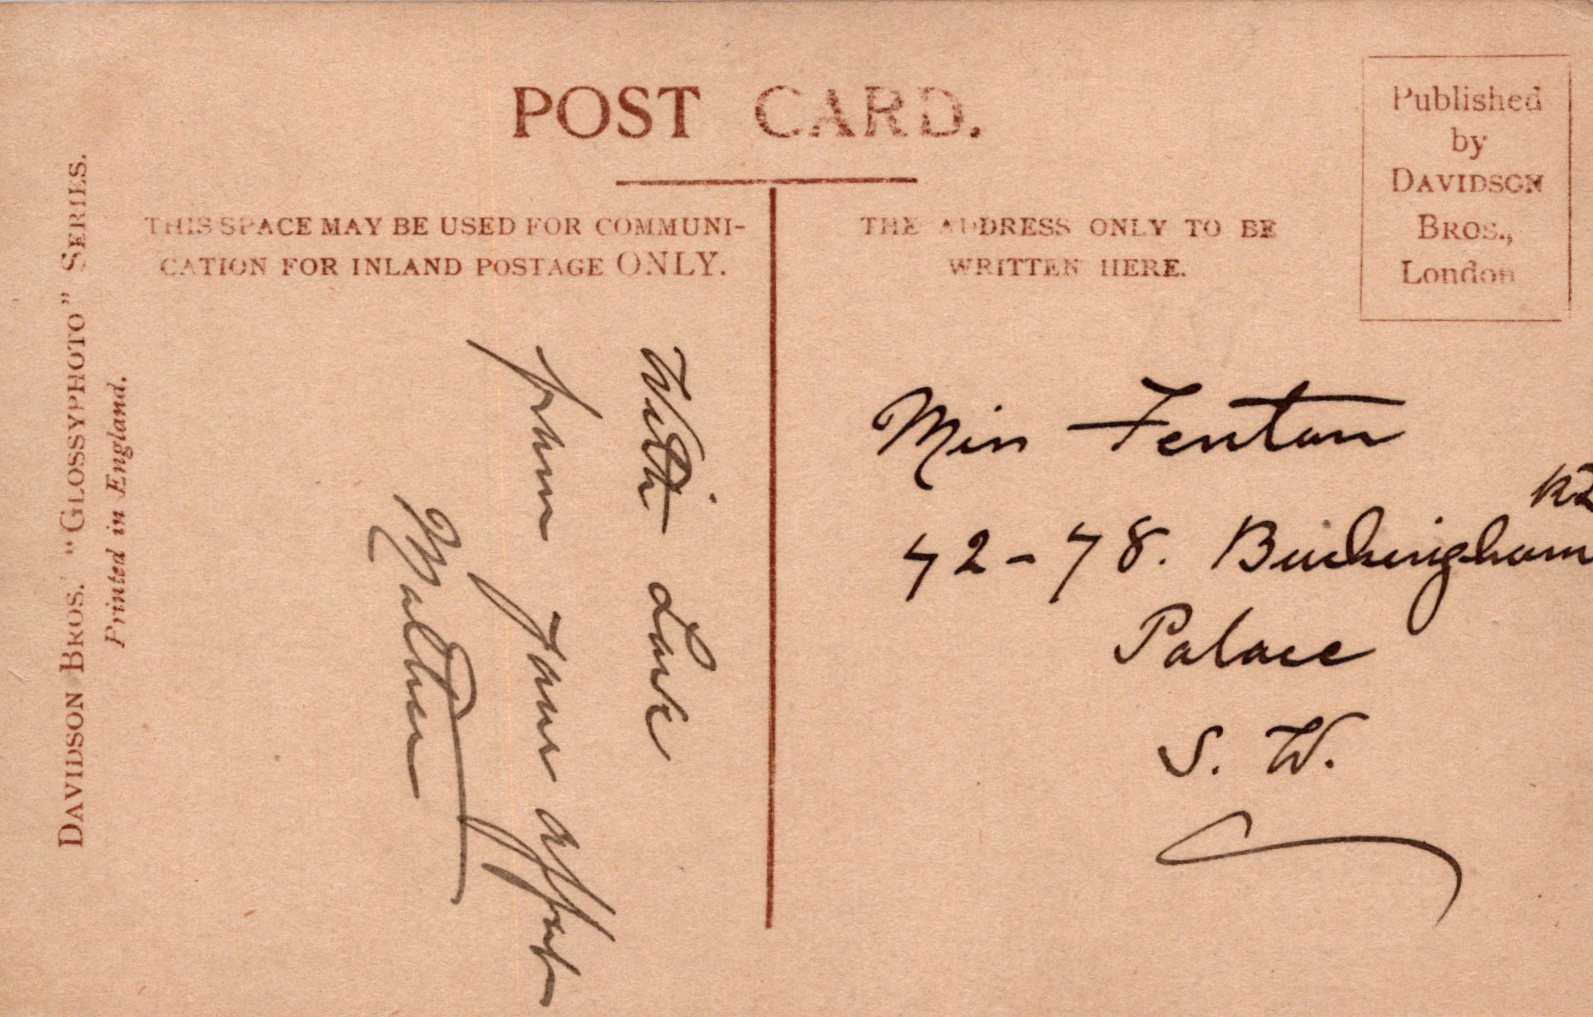 POST CARD.
Published
by
DAVIDSON
BROS.,
London
THIS SPACE MAY BE USED FOR COMMUNI-
CATION FOR INLAND POSTAGE ONLY.
THE ADDRESS ONLY TO BE
WRITTEN HERE.
DAVIDSON BROS. "GLOSSYPHOTO" SERIES.
Printed in England.
With Love
from your affect
Miss Fenton
72-78. Buckingham
Palace
S. W.